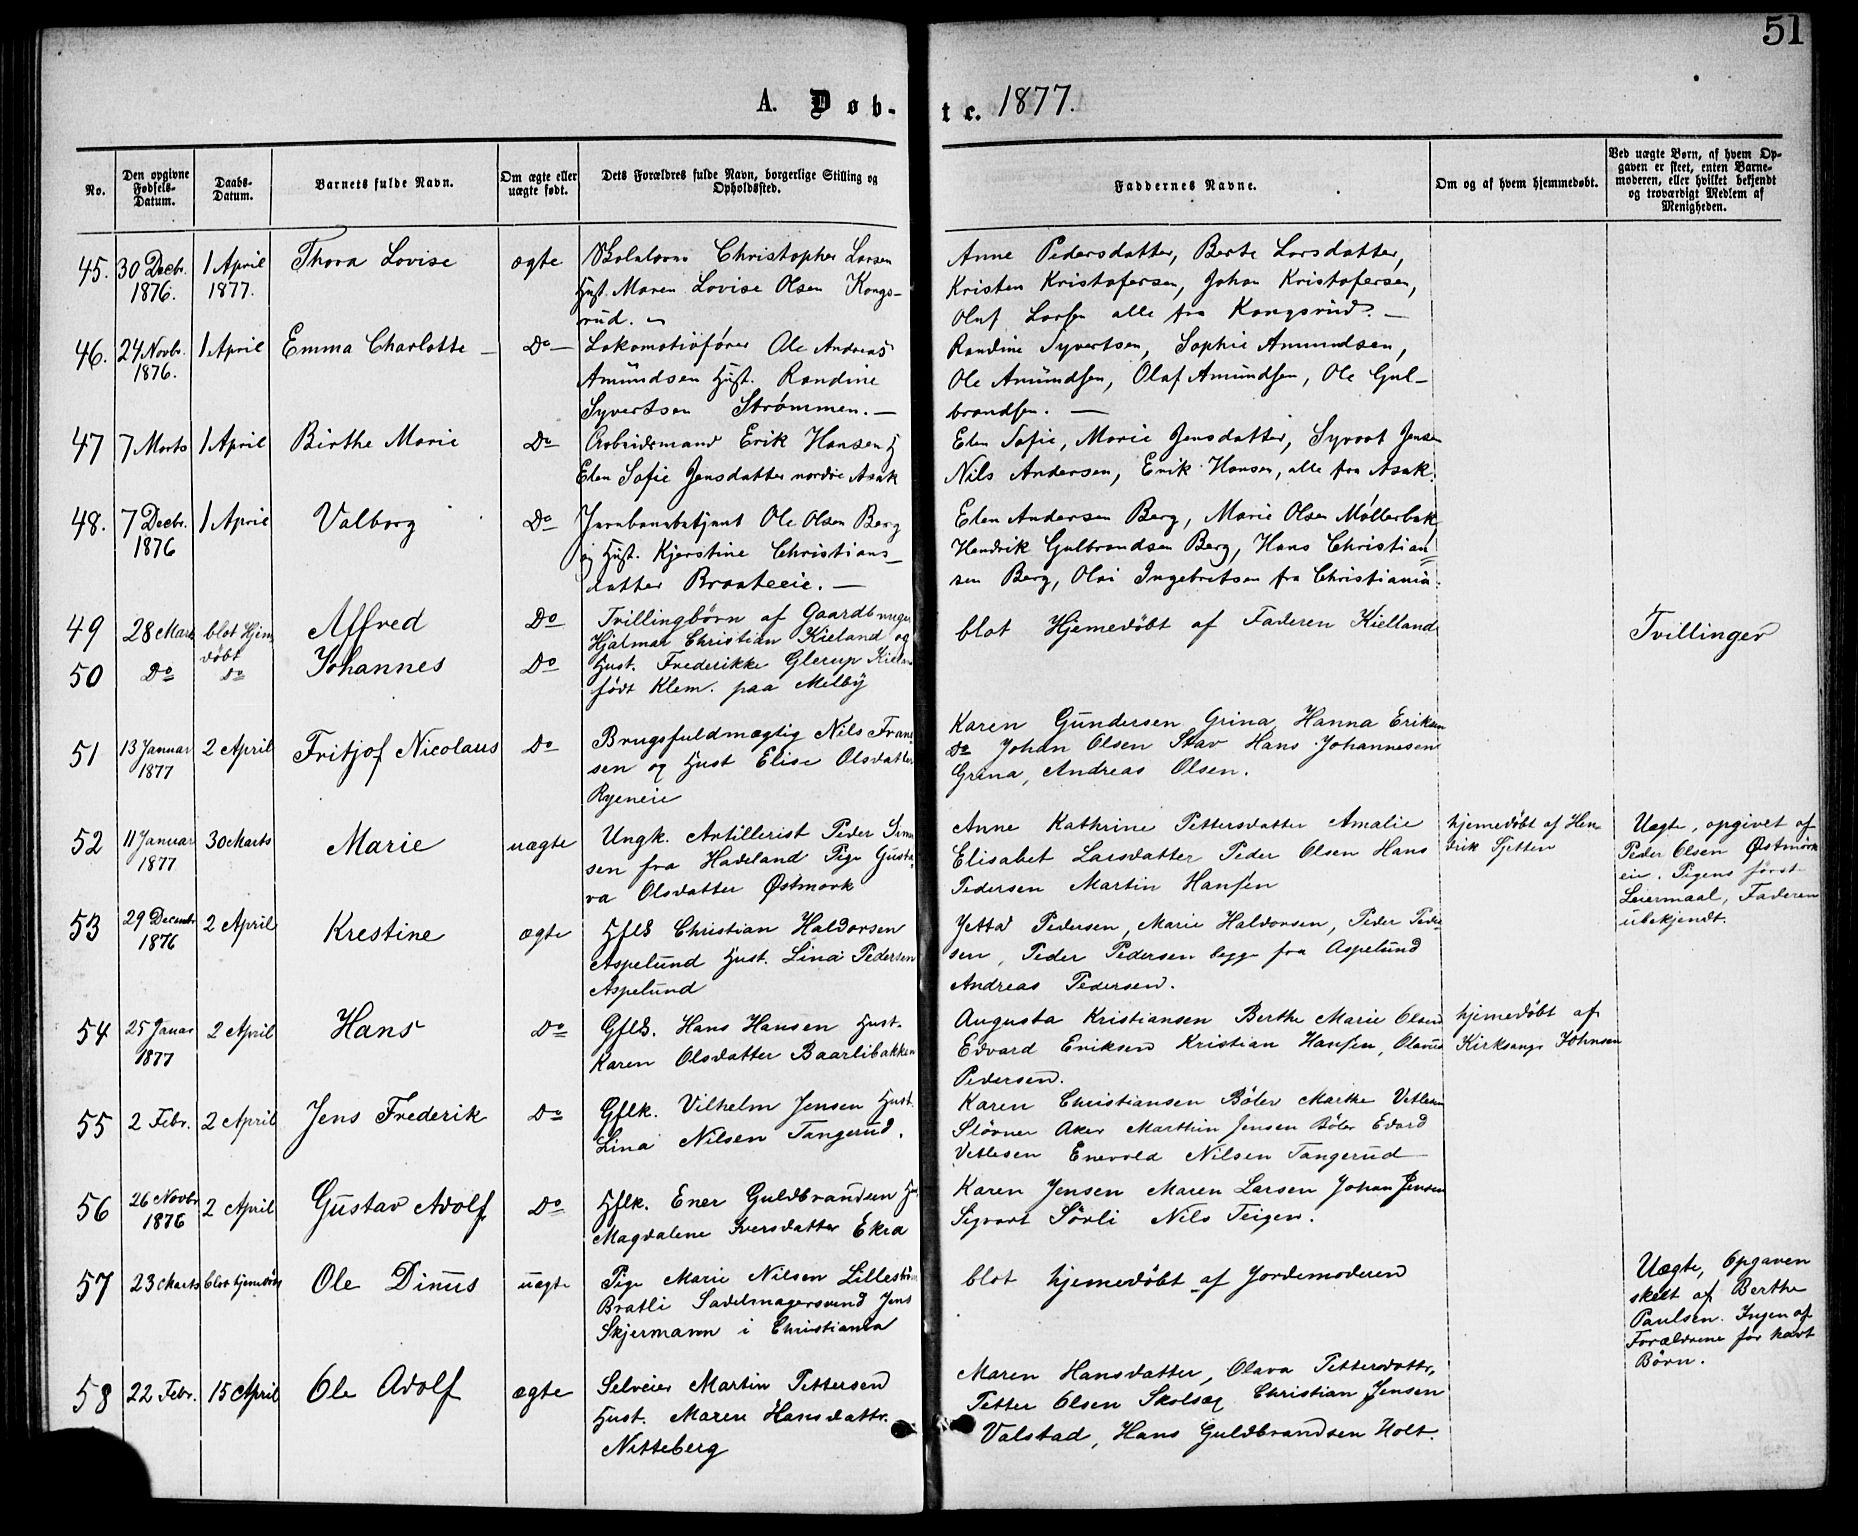 51
A. Døb-
te. 1877.
No.
Den opgivne
Fødsels-
Datum.
Daabs-
Datum.
Barnets fulde Navn.
Om ægte eller
uægte født.
Dets Forældres fulde Navn, borgerlige Stilling og
Opholdssted.
Faddernes Navne.
Om og af hvem hjemmedøbt.
Ved uægte Børn, af hvem Op-
gaven er skeet, enten Barne-
moderen, eller hvilket bekjendt
og troværdigt Medlem af
Menigheden.
45. 30 Decbr. 1 April Thora Lovise ægte Christopher Larsen
1876. 1877. Hust. Maren Lovise Olsen Kongs-
rud.
Anne Pedersdatter, Berte Larsdatter,
Kristen Kristofersen, Johan Kristofersen,
Oluf Larsen alle fra Kongsrud. —
46. 24 Novbr. 1 April Emma Charlotte — Do — Lokomotivfører Ole Andreas
1876. Amundsen Hust. Randine
Syvertsen Strømmen. —
Randine Syvertsen, Sophie Amundsen,
Ole Amundsen, Olaf Amundsen, Ole Gul-
brandsen. —
47 7 Marts 1 April Birthe Marie Do Arbeidsmand Erik Hansen H
Elen Sofie Jensdatter nordre Asak
Elen Sofie, Marie Jensdatter, Syvart Jensen
Nils Andersen, Erik Hansen, alle fra Asak.
48. 7 Decbr. 1 April Valborg Do Jernbanebetjent Ole Olsen Berg
1876 og Hust. Kjerstine Christians-
datter Braateeie. —
Elen Andersen Berg, Marie Olsen Møllerbek,
Hendrik Gulbrandsen Berg, Hans Christian-
sen Berg, Olai Ingebretsen fra Christiania.
49 28 Mars blot Hjem Alfred Do Tvillingbørn af Gaardbruger
døbt Hjalmar Christian Kieland og
50 Do Do Johannes Do Hust. Frederikke Glerup Kielan
født Klem. paa Melby
blot Hjemedøbt af Faderen Kielland
Tvillinger
51 13 Januar 2 April Fritjof Nicolaus Do Brugsfuldmægtig Nils Fran
1877 sen og Hust Elise Olsdatter
Ryeneie
Karen Gundersen Grina Hanna Eriksen
Do Johan Olsen Stav Hans Johannesen
Grina, Andreas Olsen.
52 11 Januar 30 Marts Marie uægte Ungk. Artillerist Peder Simen
1877 sen fra Hadeland Pige Gusta
va Olsdatter Østmork
Anne Kathrine Pettersdatter Amalie
Elisabet Larsdatter Peder Olsen Hans
Pedersen Martin Hansen
hjemedøbt af Hen
drik Sjetten
Uægte, opgivet af
Peder Olsen Østmörk
eie. Pigens först
Leiermaal, Faderen
ubekjendt.
53 29 Decembr 2 April Krestine ægte Hflk Christian Haldorsen
1876 Aspelund Hust. Lina Pedersen
Aspelund
Jetta Pedersen, Marie Haldorsen, Peder Peder
sen, Peder Pedersen begge fra Aspelund
Andreas Pedersen.
54 25 Januar 2 April Hans Do Gflk. Hans Hansen Hust.
1877 Karen Olsdatter Baarlibakken
Augusta Kristiansen Berthe Marie Olsen
Edvard Eriksen Kristian Hansen, Olavus
Pedersen.
hjemedøbt af
Kirksangr Johnsen
55 2 Febr. 2 April Jens Frederik Do Gflk. Vilhelm Jensen Hust.
Lina Nilsen Tangerud.
Karen Christiansen Böler Marthe Vetlesen
Stövner Aker Marthin Jensen Böler Edvard
Vetlesen Enevold Nilsen Tangerud
56 26 Novbr 2 April Gustav Adolf Do Hflk. Ener Guldbrandsen Hu
1876 Magdalene Iversdatter Ekra
Karen Jensen Maren Larsen Johan Jensen
Sigvart Sörli Nils Teigen.
57 23 Marts blot hjemedöbt Ole Dinus uægte Pige Marie Nilsen Lilleström
Bratli Sadelmagersvend Jens
Skjermann i Christiania
blot hjemedöbt af Jordemoderen
Uægte, Opgaven
skeet af Berthe
Paulsen. Ingen af
Forældrene før havt
Børn.
58 22 Febr. 15 April Ole Adolf ægte Selveier Martin Pettersen
Hust. Maren Hansdattr.
Nitteberg
Maren Hansdatter, Olava Pettersdattr,
Petter Olsen Christian Jensen
Valstad, Hans Guldbrandsen Holt.